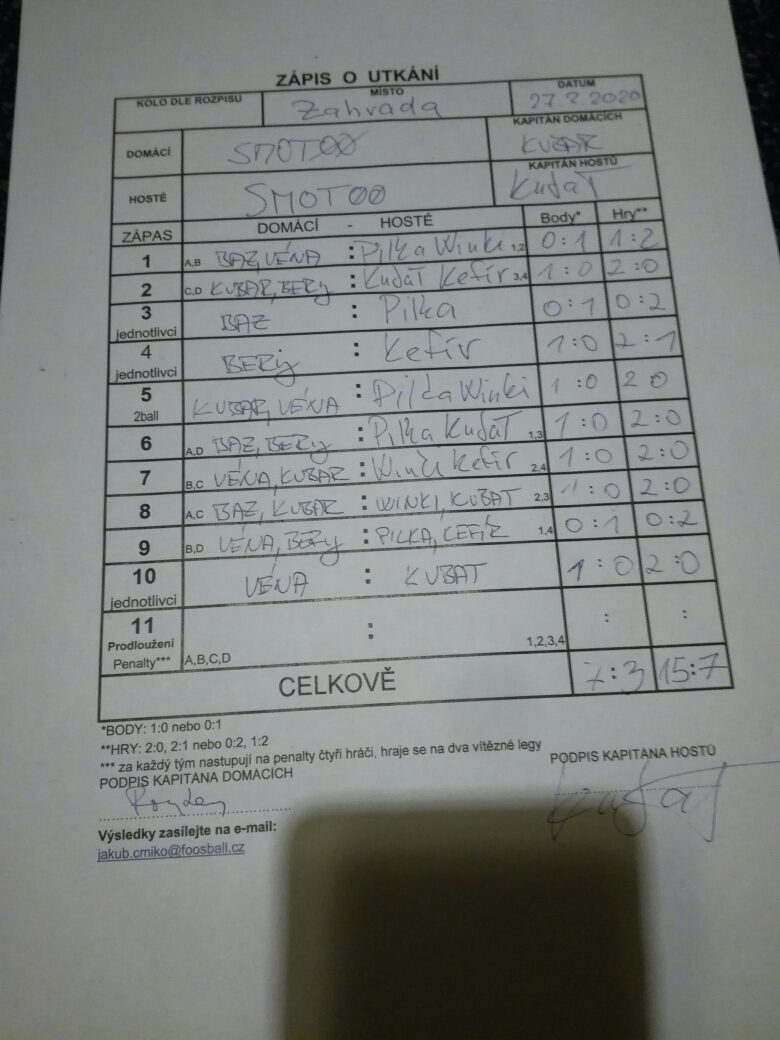 ZÁPIS O UTKÁNÍ
KOLO DLE ROZPISU MÍSTO Zahrada DATUM 27.2.2020
DOMÁCÍ SMOTOO KAPITÁN DOMÁCÍCH KUBAR
HOSTÉ SMOTOO KAPITÁN HOSTŮ Kubat
ZÁPAS DOMÁCÍ - HOSTÉ Body* Hry**
1 A,B BAZ, VÉNA : Pilka Winki 1,2 0:1 1:2
2 C,D KUBAR, BERY : Kubat Kefír 3,4 1:0 2:0
3 jednotlivci BAZ : Pilka 0:1 0:2
4 jednotlivci BERY : Kefír 1:0 2:1
5 2ball KUBAR, VÉNA : Pilka Winki 1:0 2 0
6 A,D BAZ, BERY : Pilka Kubat 1,3 1:0 2:0
7 B,C VÉNA, KUBAR : Winki Kefír 2,4 1:0 2:0
8 A,C BAZ, KUBAR : WINKI, KUBAT 2,3 1:0 2:0
9 B,D VÉNA, BERY : PILKA, KEFÍR 1,4 0:1 0:2
10 jednotlivci VÉNA : KUBAT 1:0 2:0
11 Prodloužení Penalty*** A,B,C,D : 1,2,3,4 : :
CELKOVĚ 7:3 15:7
*BODY: 1:0 nebo 0:1
**HRY: 2:0, 2:1 nebo 0:2, 1:2
*** za každý tým nastupují na penalty čtyři hráči, hraje se na dva vítězné legy
PODPIS KAPITÁNA DOMÁCÍCH PODPIS KAPITÁNA HOSTŮ
Kubat
Výsledky zasílejte na e-mail:
jakub.cmiko@foosball.cz